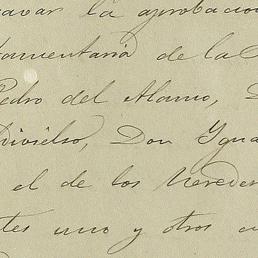 avar la aprobacion
tamentaria de la
Pedro del Alamo,
Diviselso, Don Ygna
el de los Hereder
tes uno y otros en